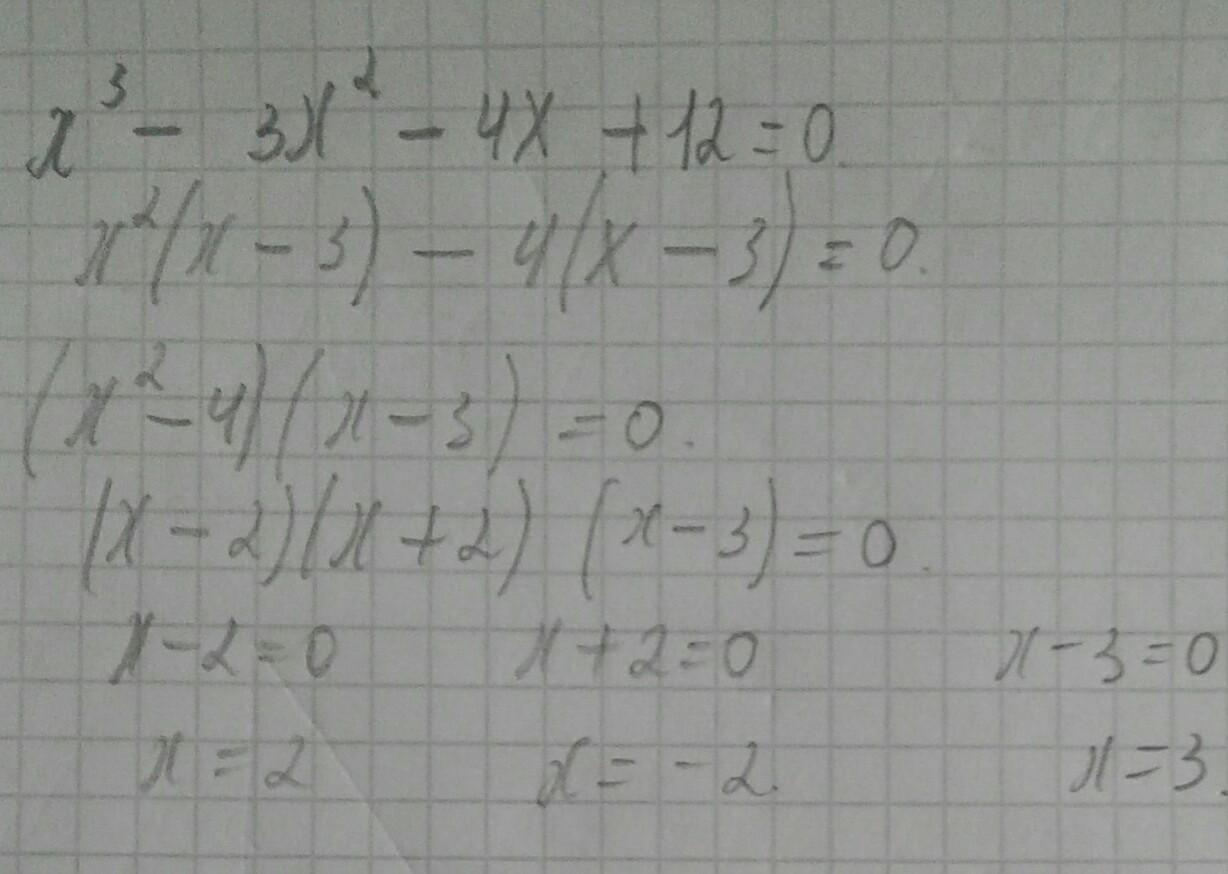 x³ - 3x² - 4x + 12 = 0.
x²(x - 3) - 4(x - 3) = 0.
(x² - 4)(x - 3) = 0.
(x - 2)(x + 2) (x - 3) = 0.
x - 2 = 0 x + 2 = 0 x - 3 = 0
x = 2 x = - 2. x = 3.